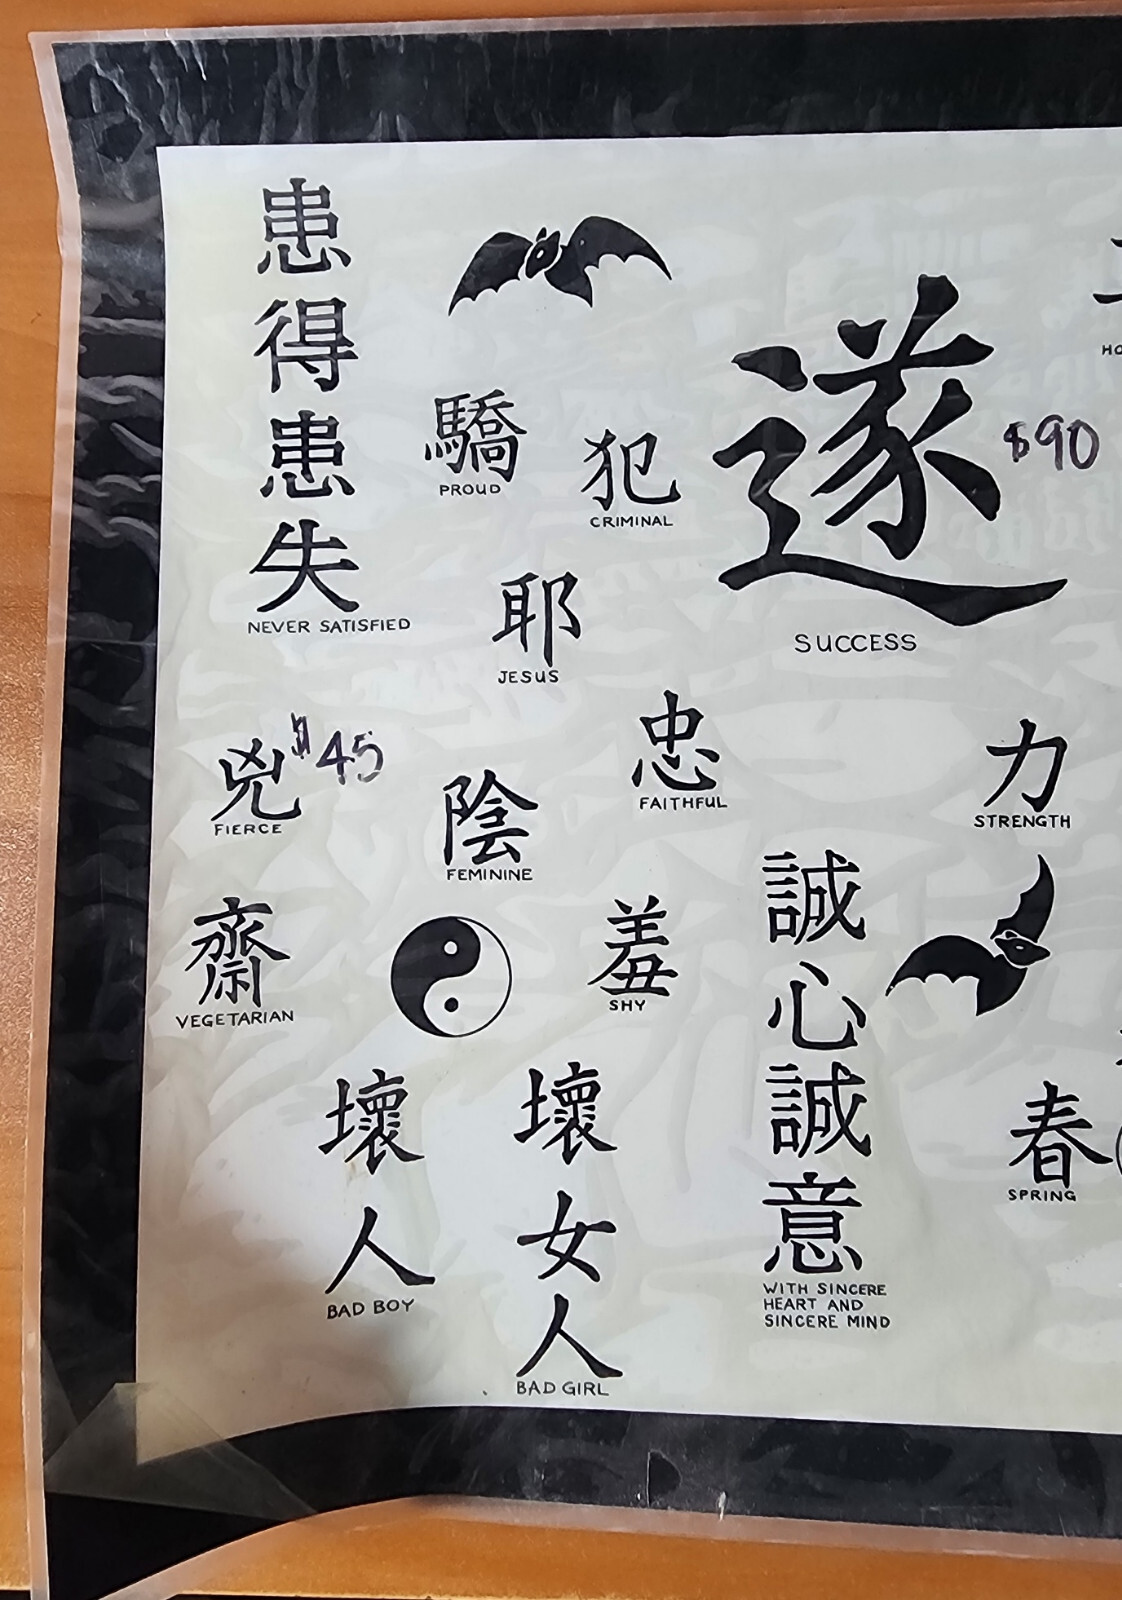 患得患失
NEVER SATISFIED
驕
PROUD
犯
CRIMINAL
遂
$90
SUCCESS
耶
JESUS
兇
$45
FIERCE
陰
FEMININE
忠
FAITHFUL
力
STRENGTH
齋
VEGETARIAN
羞
SHY
誠心誠意
WITH SINCERE
HEART AND
SINCERE MIND
春
SPRING
壞人
BAD BOY
壞女人
BAD GIRL